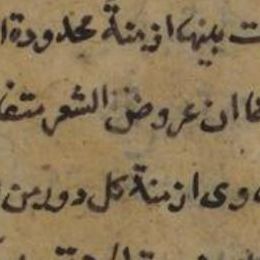 ت بينها ازمنة محدودة ا
ما ان عروض الشعر متفا
وى ازمنة كل دور من